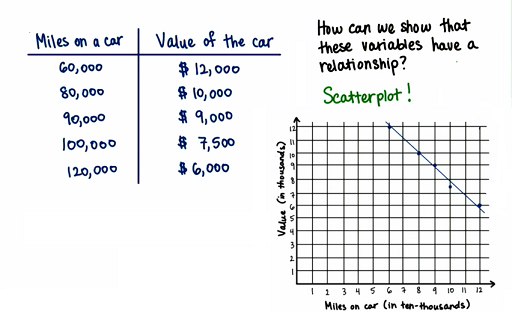 Miles on a car Value of the car
60,000 $ 12,000
80,000 $ 10,000
90,000 $ 9,000
100,000 $ 7,500
120,000 $ 6,000
How can we show that
these variables have a
relationship?
Scatterplot!
Value (in thousands)
12
11
10
9
8
7
6
5
4
3
2
1
1 2 3 4 5 6 7 8 9 10 11 12
Miles on car (in ten-thousands)